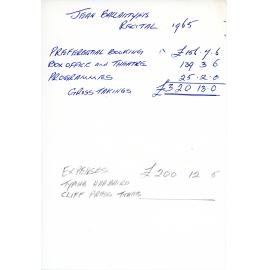 JEAN BALLANTYNE
RECITAL 1965
PREFERENTIAL BOOKING £156.7.6
BOX OFFICE AND THEATRE 139 3 6
PROGRAMMES 25.2.0
GROSS TAKINGS £320 13.0
EXPENSES £200 12 6